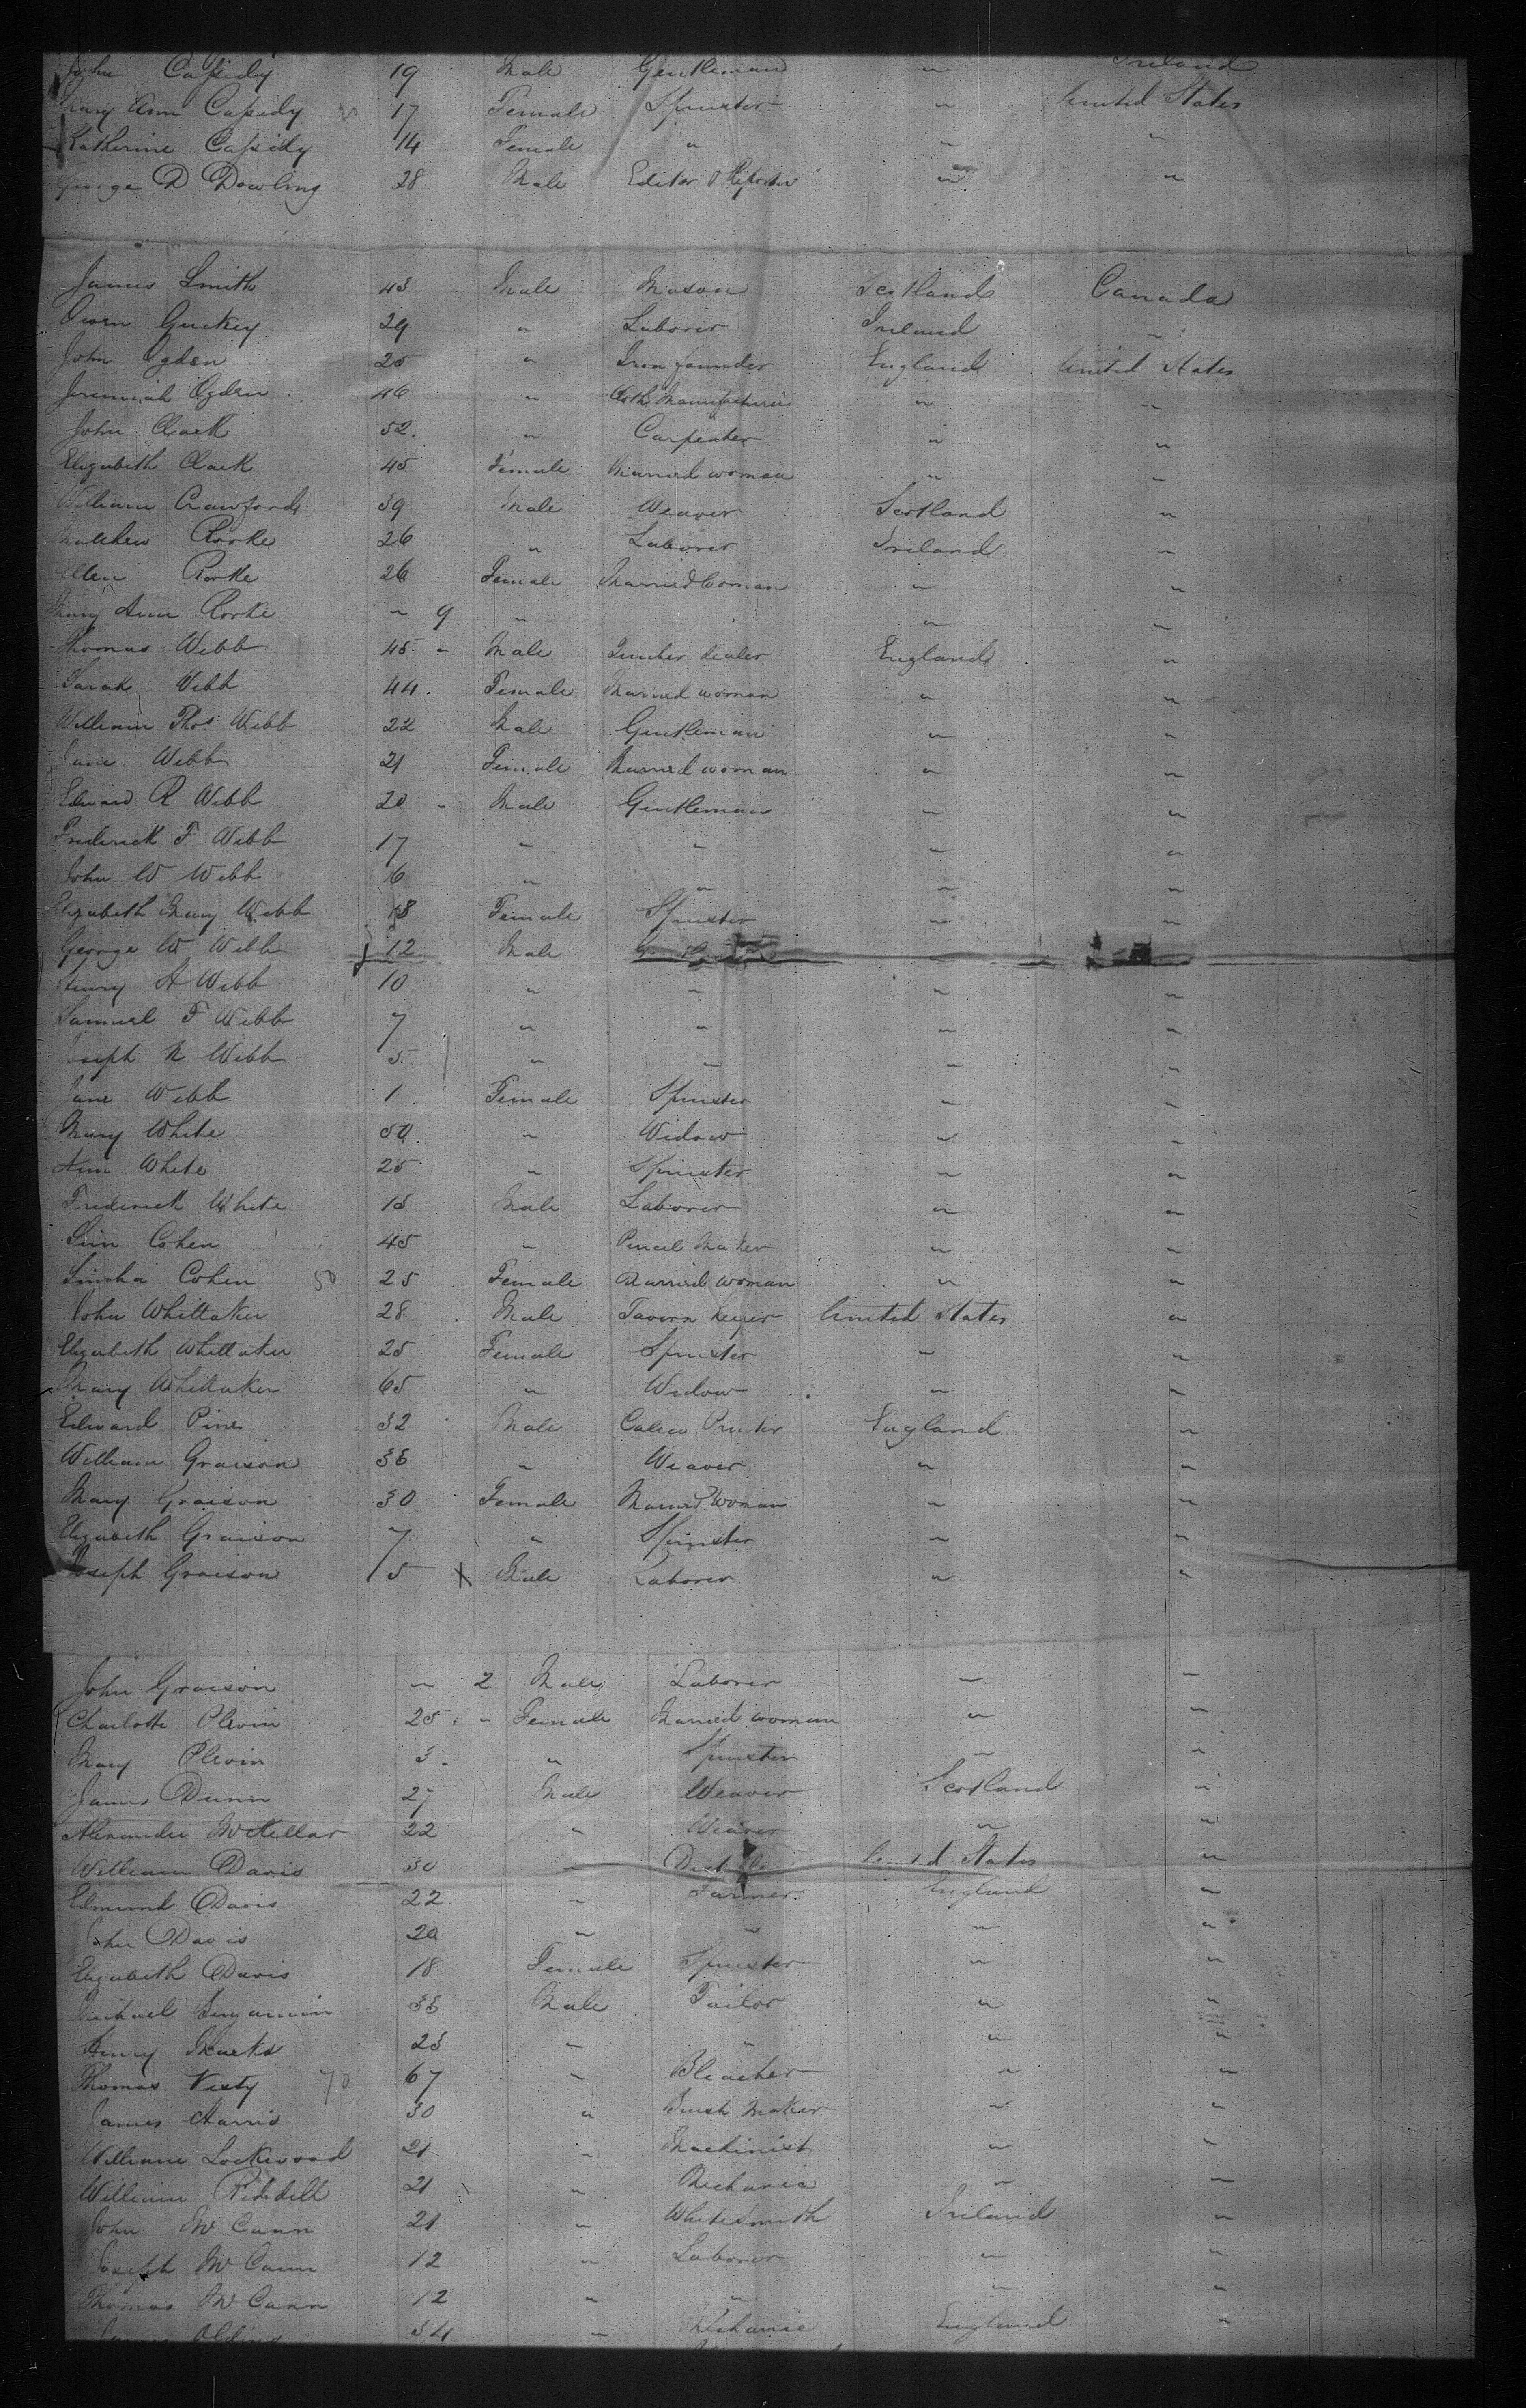 John Cassidy 19 Male Gentleman " Ireland
Mary Ann Cassidy 17 Female Spinster " United States
Katherine Cassidy 14 Female " " "
George D Dowling 28 Male Editor & Reporter " "
James Smith 43 Male Mason Scotland Canada
Owen 29 " Laborer Ireland "
John Ogden 25 " Iron founder England United States
Jeremiah Ogden 46 " Cloth Manufacturer " "
John Clark 52 " Carpenter " "
Elizabeth Clark 45 Female Married woman " "
William Crawford 39 Male Weaver Scotland "
Matthew Rorke 26 " Laborer Ireland "
Ellen Rorke 26 Female Married Woman " "
Mary Ann Rorke " 9 " " "
Thomas Webb 45 " Male Timber dealer England "
Sarah Webb 44 Female Married woman " "
William Thos Webb 22 Male Gentleman " "
Jane Webb 21 Female Married woman " "
Edward R Webb 20 " Male Gentleman " "
Frederick F Webb 17 " " " "
John W Webb 16 " " " "
Elizabeth Mary Webb 18 Female Spinster " "
George W Webb 12 Male "
Henry A Webb 10 " " " "
Samuel F Webb 7 " " " "
Joseph N Webb 5 " " " "
Jane Webb 1 Female Spinster " "
Mary White 50 " Widow " "
Ann White 25 " Spinster " "
Frederick White 15 Male Laborer " "
Sim Cohen 45 " Pencil Maker " "
Simha Cohen 50 25 Female Married woman " "
John Whittaker 28 Male Tavern keeper United States "
Elizabeth Whittaker 25 Female Spinster " "
Mary Whittaker 65 " Widow " "
Edward Pine 32 Male Calico Printer England "
William Graison 33 " Weaver " "
Mary Graison 30 Female Married Woman " "
Elizabeth Graison 7 " Spinster " "
Joseph Graison 5 Male Laborer " "
John Graison " 2 Male Laborer " "
Charlotte Plevin 25 " Female Married woman " "
Mary Plevin 3 " Spinster " "
James Dunn 27 Male Weaver Scotland "
Alexander McKellar 22 " Weaver " "
William Davis 30 " United States "
Edmund Davis 22 " Farmer England "
John Davis 20 " " " "
Elizabeth Davis 18 Female Spinster " "
Michael Benjamin 33 Male Tailor " "
Henry Marks 23 " " " "
Thomas Vesty 70 67 " Bleacher " "
James Harris 30 " Brush Maker " "
William Lockwood 21 " Machinist " "
William Riddell 21 " Mechanic " "
John McCann 21 " Whitesmith Ireland "
Joseph McCann 12 " Laborer " "
Thomas McCann 12 " " " "
34 " Mechanic England "